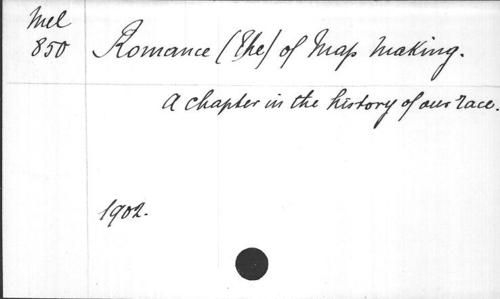 Mel
850
Romance (The) of Map Making.
A chapter in the history of our race.
1902.